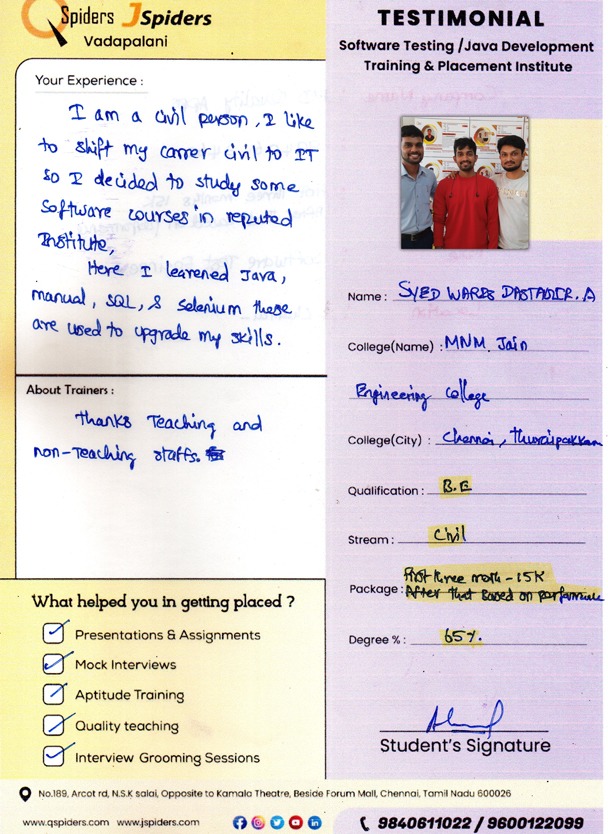 QSpiders JSpiders
Vadapalani
TESTIMONIAL
Software Testing /Java Development
Training & Placement Institute
Your Experience :
I am a civil person, I like
to shift my carrer civil to IT
so I decided to study some
software courses in reputed
Institute,
Here I learened Java,
manual, SQL, & selenium these
are used to upgrade my skills.
About Trainers :
thanks Teaching and
non-Teaching staffs.
What helped you in getting placed ?
Presentations & Assignments
Mock Interviews
Aptitude Training
Quality teaching
Interview Grooming Sessions
Name : SYED WARES DASTAGIR. A
College(Name) : MNM Jain
Engineering College
College(City) : Chennai, Thuraipakkam
Qualification : B.E
Stream : Civil
Package : First three month - 15K
After that based on performance
Degree % : 65%.
Student's Signature
No.189, Arcot rd, N.S.K salai, Opposite to Kamala Theatre, Beside Forum Mall, Chennai, Tamil Nadu 600026
www.qspiders.com www.jspiders.com
9840611022 / 9600122099